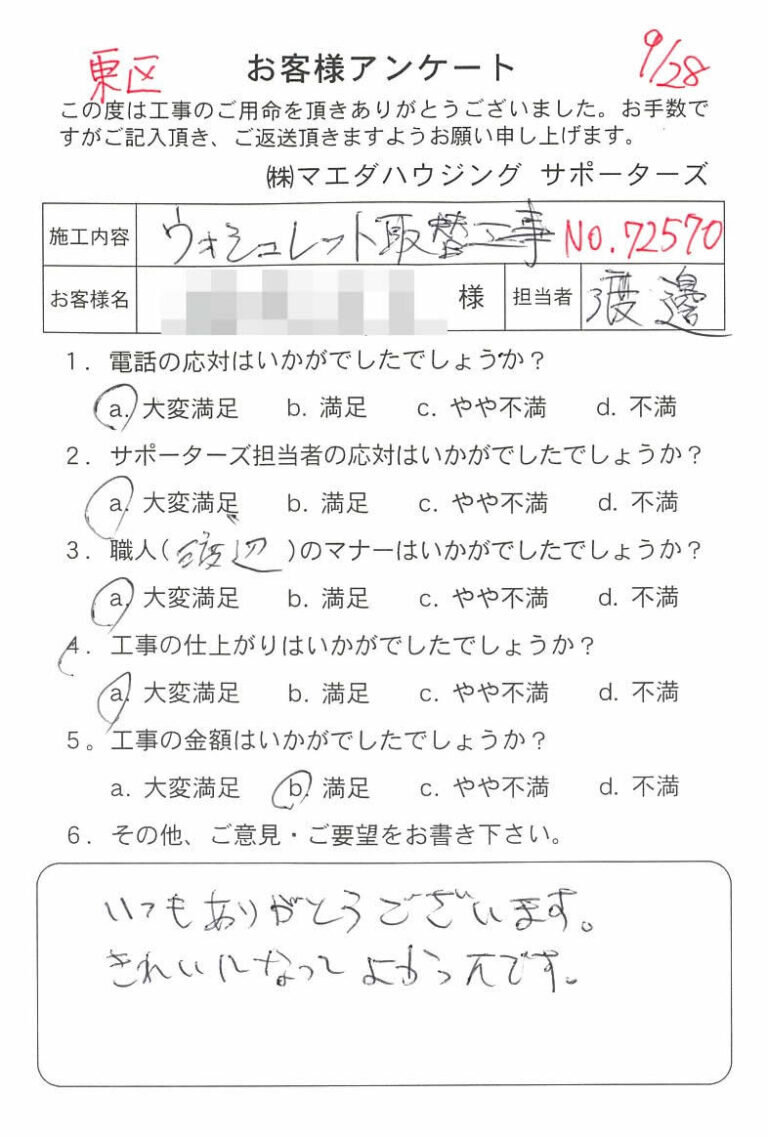 東区 お客様アンケート 9/28
この度は工事のご用命を頂きありがとうございました。お手数で
すがご記入頂き、ご返送頂きますようお願い申し上げます。
㈱マエダハウジング サポーターズ
施工内容 ウォシュレット取替工事 No.72570
お客様名 様 担当者 渡邊
1. 電話の応対はいかがでしたでしょうか?
a. 大変満足 b. 満足 c. やや不満 d. 不満
2. サポーターズ担当者の応対はいかがでしたでしょうか?
a. 大変満足 b. 満足 c. やや不満 d. 不満
3. 職人(渡辺)のマナーはいかがでしたでしょうか?
a. 大変満足 b. 満足 c. やや不満 d. 不満
4. 工事の仕上がりはいかがでしたでしょうか?
a. 大変満足 b. 満足 c. やや不満 d. 不満
5。工事の金額はいかがでしたでしょうか?
a. 大変満足 b. 満足 c. やや不満 d. 不満
6. その他、ご意見・ご要望をお書き下さい。
いつもありがとうございます。
きれいになってよかったです。